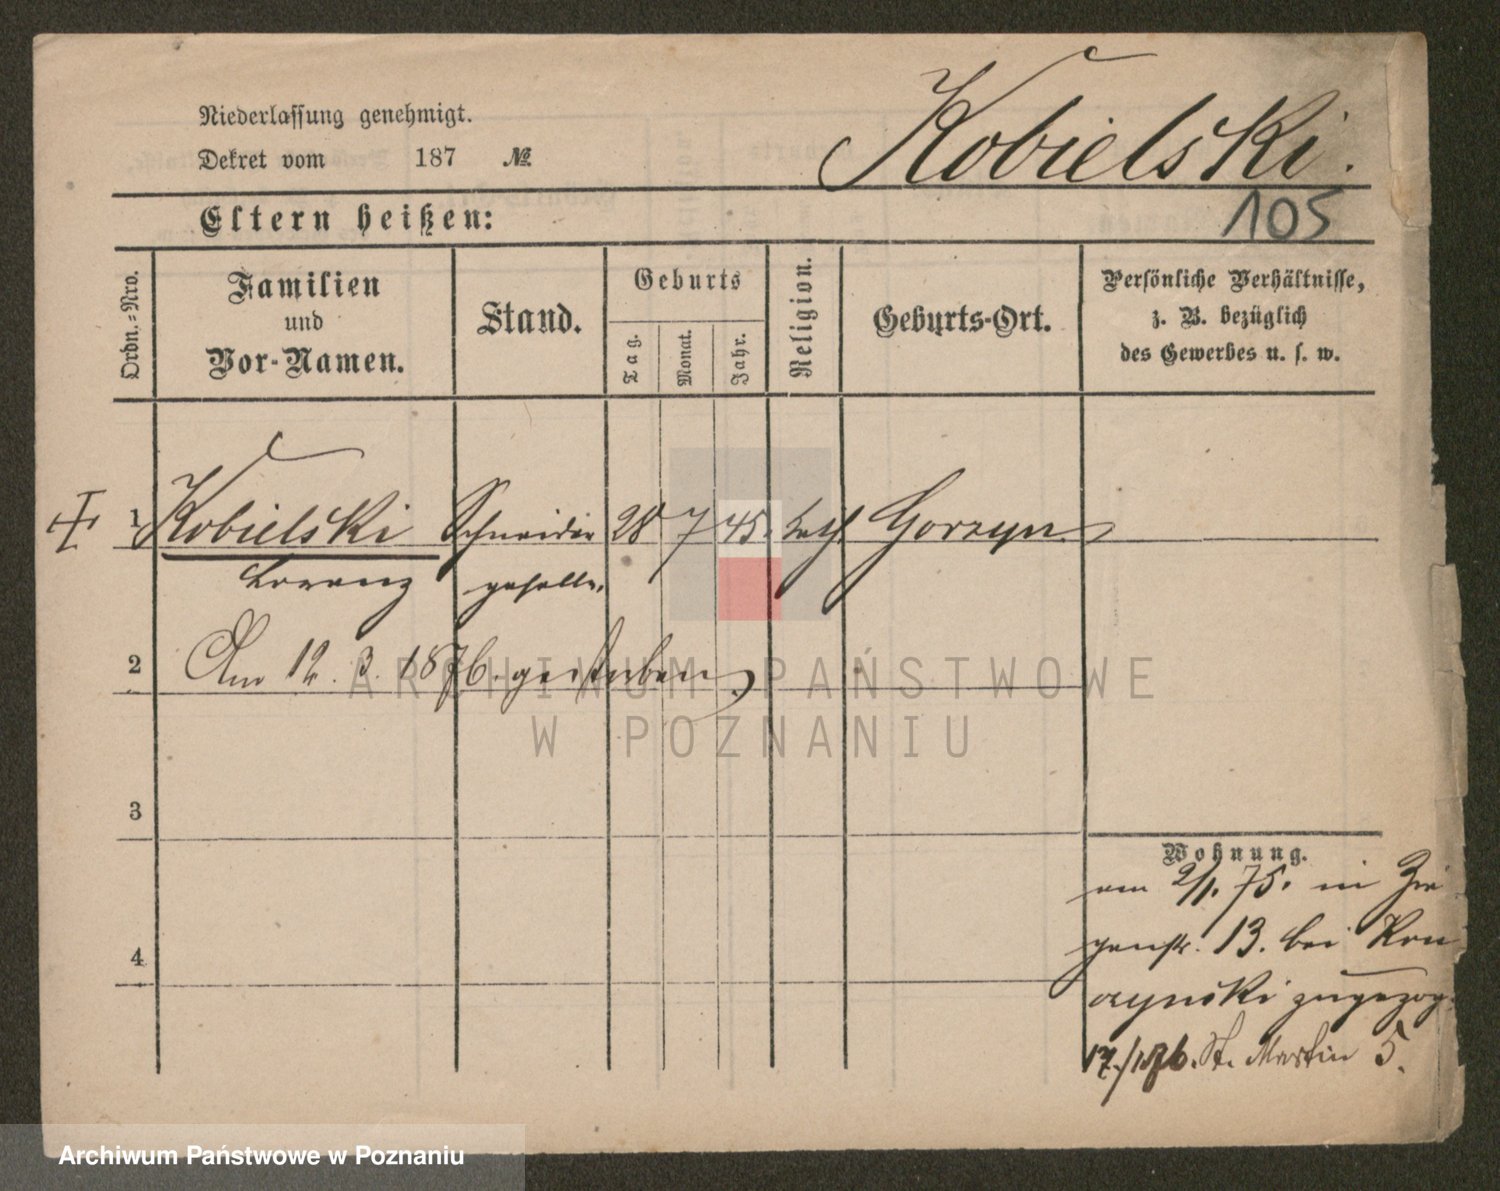 Niederlassung genehmigt.
Dekret vom 187 №
Kobielski.
105
Eltern heißen:
Ordn.-Nro.
Familien
und
Vor-Namen.
Stand.
Geburts
Tag.
Monat.
Jahr.
Religion.
Geburts-Ort.
Persönliche Verhältnisse,
z. B. bezüglich
des Gewerbes u. s. w.
1 Kobielski Schneider 28 7 45. kath Gorzyn
Lorenz geselle.
2 Am 12. 3. 1876. gestorben
ARCHIWUM PAŃSTWOWE
W POZNANIU
3
Wohnung.
am 2/1. 75. in Zie
genstr. 13. bei
4
zugezog.
St. Martin 5.
Archiwum Państwowe w Poznaniu